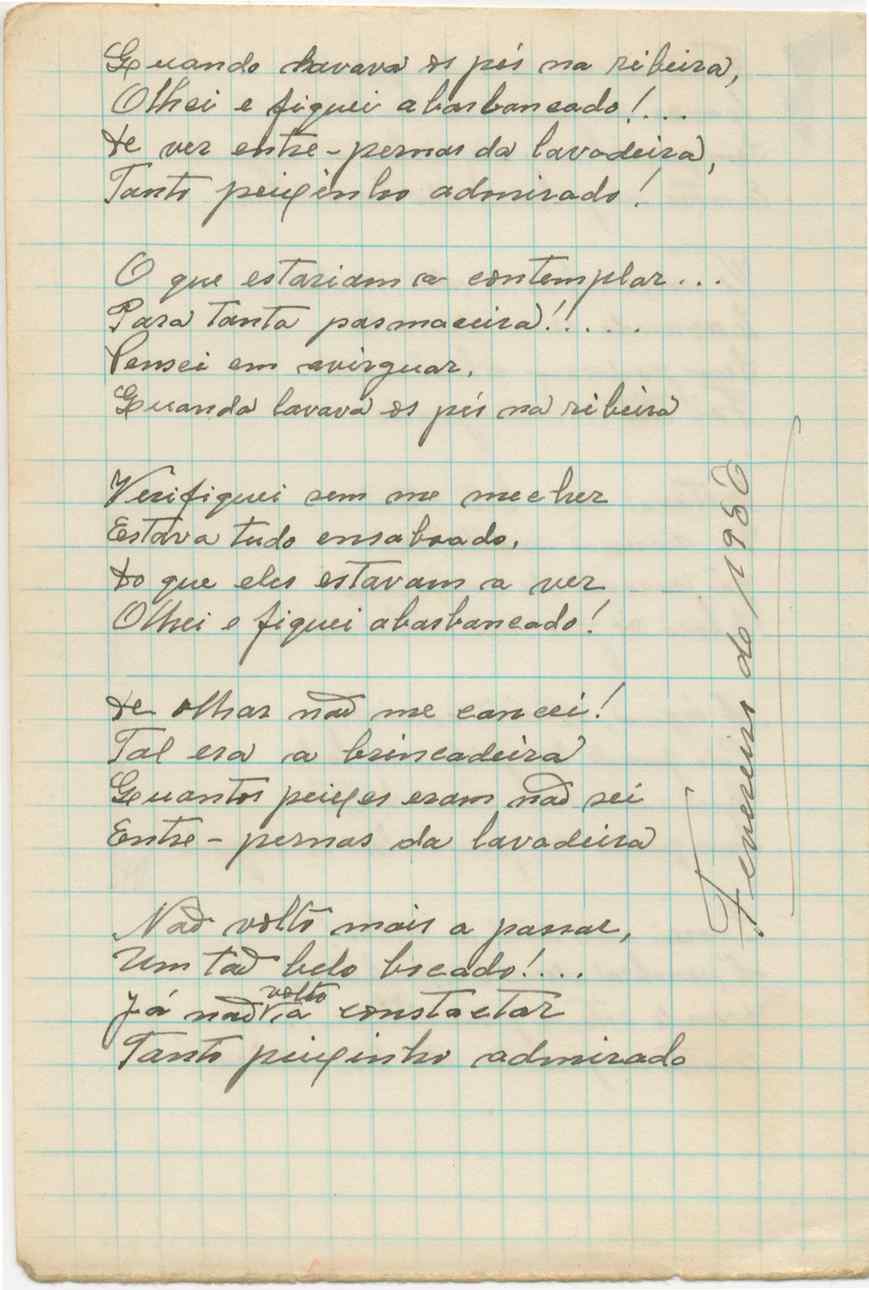 Quando lavava os pés na ribeira,
Olhei e fiquei abasbancado!...
De ver entre-pernas da lavadeira,
Tanto peixinho admirado!
O que estariam a contemplar...
Para tanta pasmaceira!!.....
Pensei em avirguar,
Quando lavava os pés na ribeira
Verifiquei sem me mecher
Estava tudo ensaboado,
Do que eles estavam a ver
Olhei e fiquei abasbancado!
De olhar não me cancei!
Tal era a brincadeira
Quantos peixes eram não sei
Entre-pernas da lavadeira
Não volto mais a passar,
Um tão belo bocado!...
Já não volto a constactar
Tanto peixinho admirado
Fevereiro de